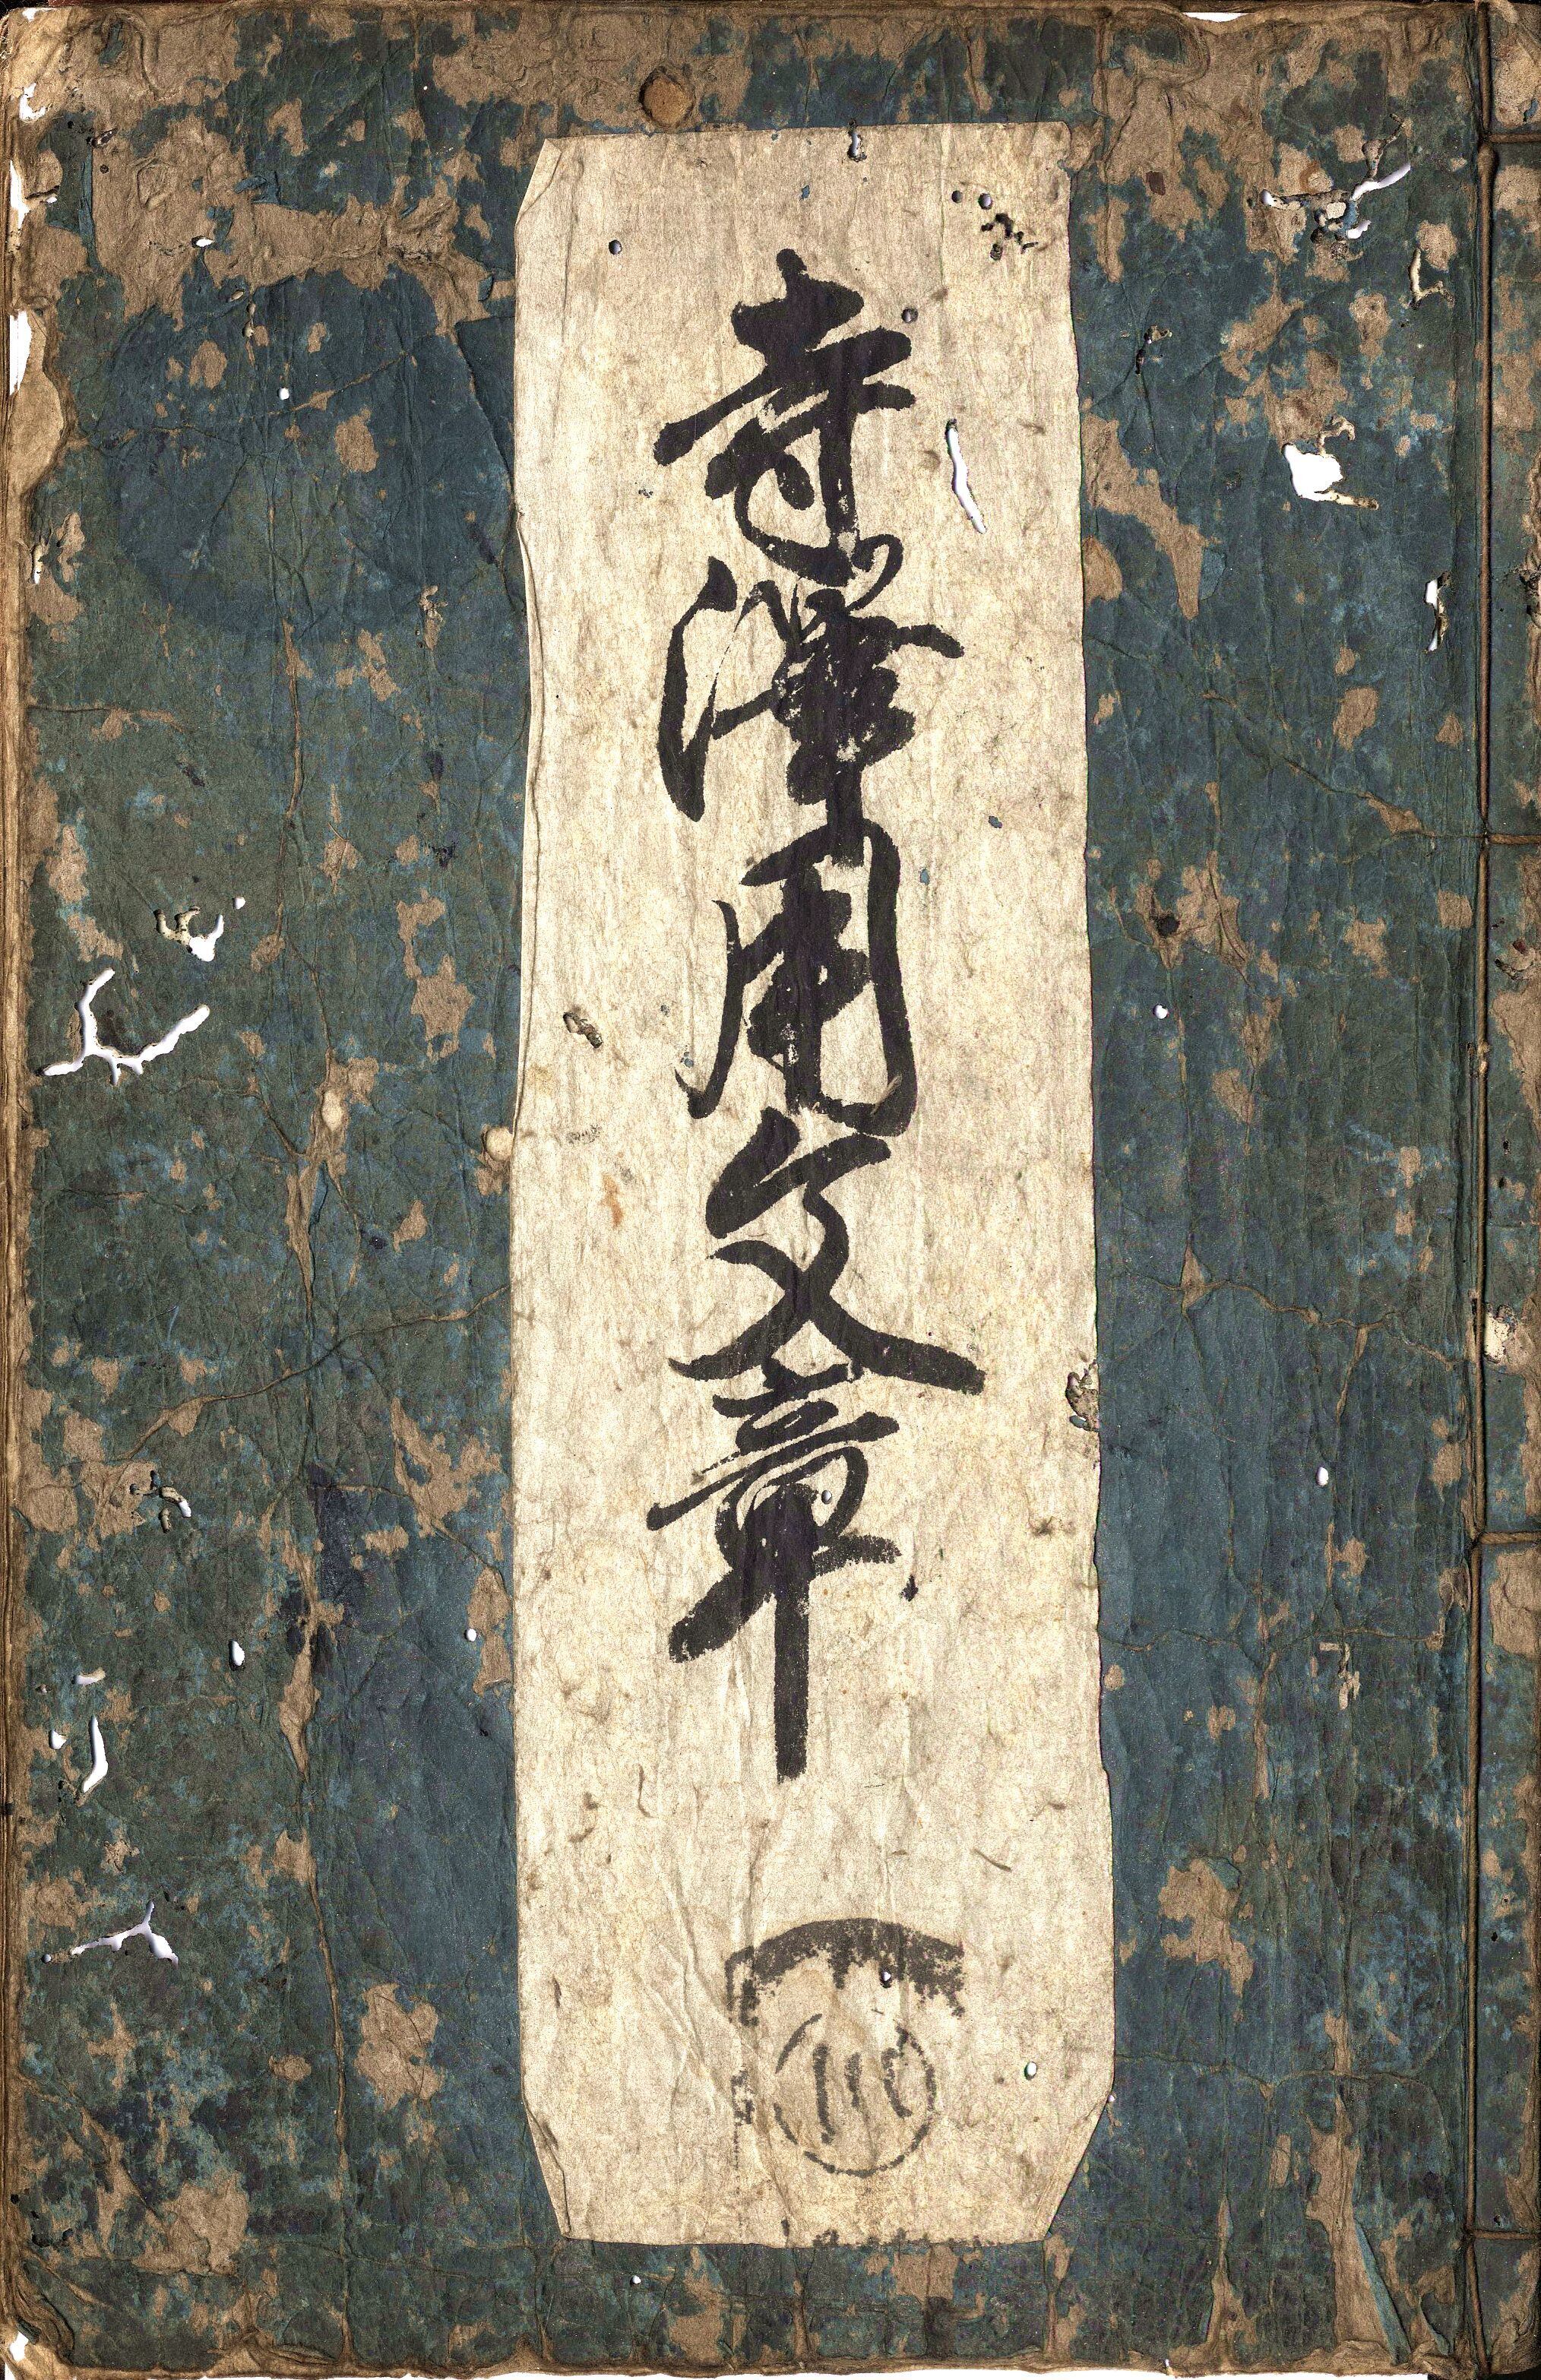 寺澤用文章
川